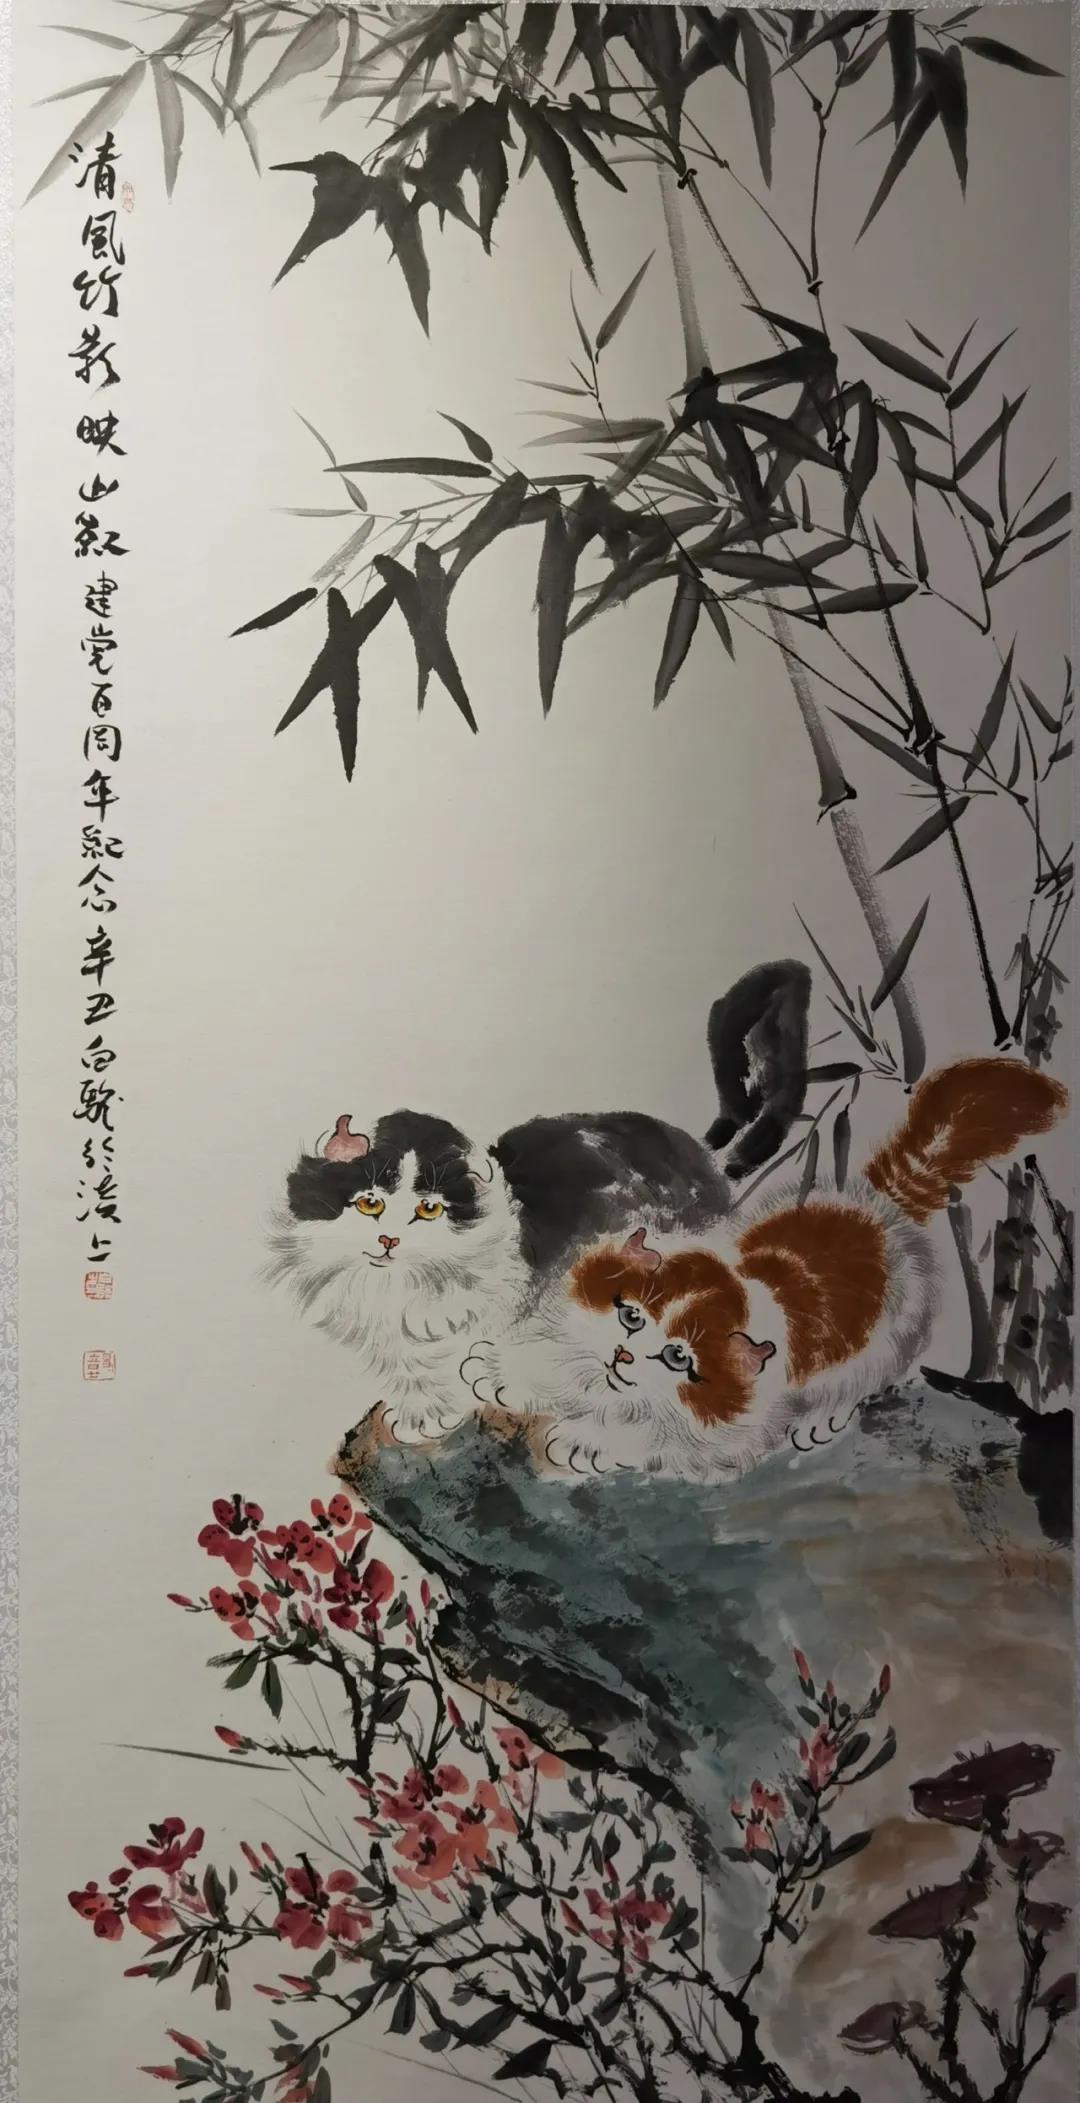 清風竹影映山紅建党百周年紀念辛丑白駿於滬上